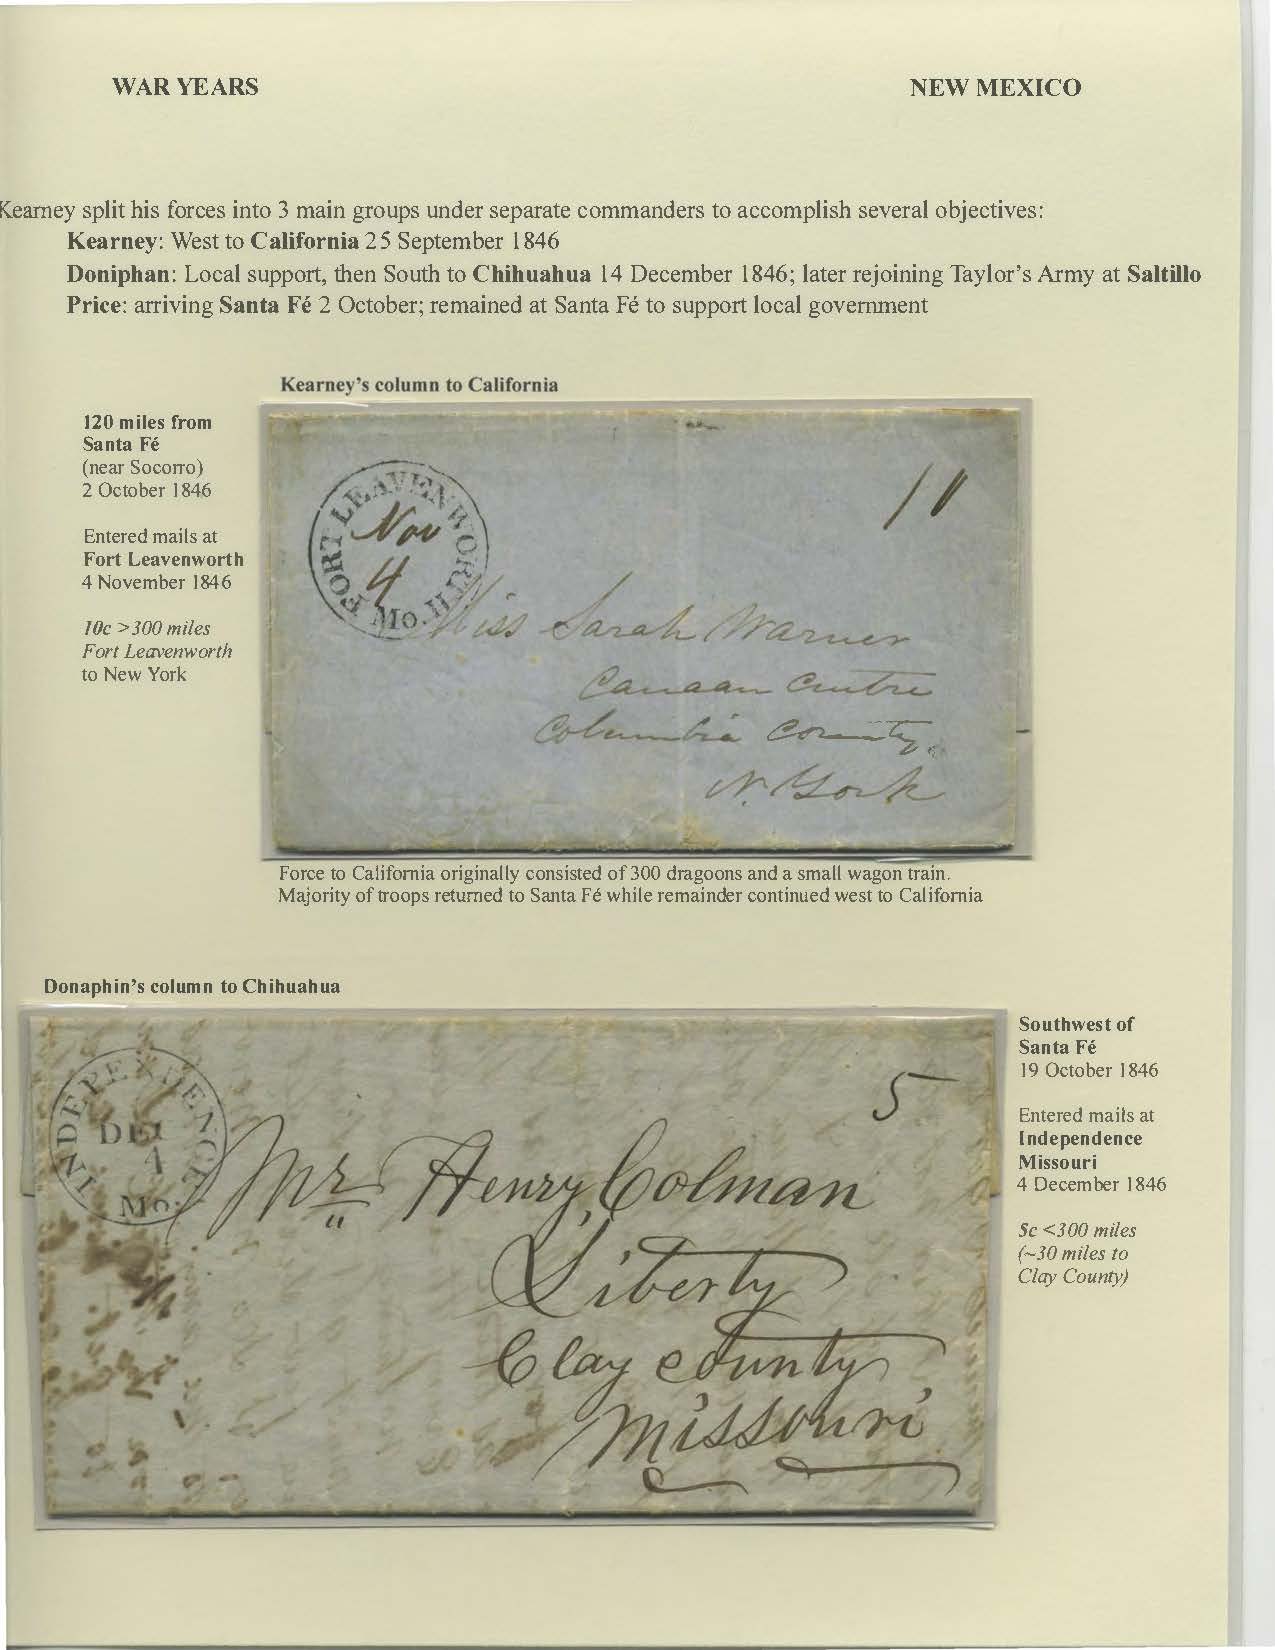 WAR YEARS
NEW MEXICO
Kearney split his forces into 3 main groups under separate commanders to accomplish several objectives:
Kearney: West to California 25 September 1846
Doniphan: Local support, then South to Chihuahua 14 December 1846; later rejoining Taylor's Army at Saltillo
Price: arriving Santa Fé 2 October; remained at Santa Fé to support local government
Kearney's column to California
120 miles from
Santa Fé
(near Socorro)
2 October 1846
Entered mails at
Fort Leavenworth
4 November 1846
10c >300 miles
Fort Leavenworth
to New York
FORT LEAVENWORTH
Nov
4
Mo.
10
Miss Sarah Warner
Canaan Centre
Columbia County.
N. York
Force to California originally consisted of 300 dragoons and a small wagon train.
Majority of troops returned to Santa Fé while remainder continued west to California
Donaphin's column to Chihuahua
INDEPENDENCE
DEC
4
Mo.
5
Mr. Henry Colman
Liberty
Clay county
Missouri
Southwest of
Santa Fé
19 October 1846
Entered mails at
Independence
Missouri
4 December 1846
5c <300 miles
(~30 miles to
Clay County)